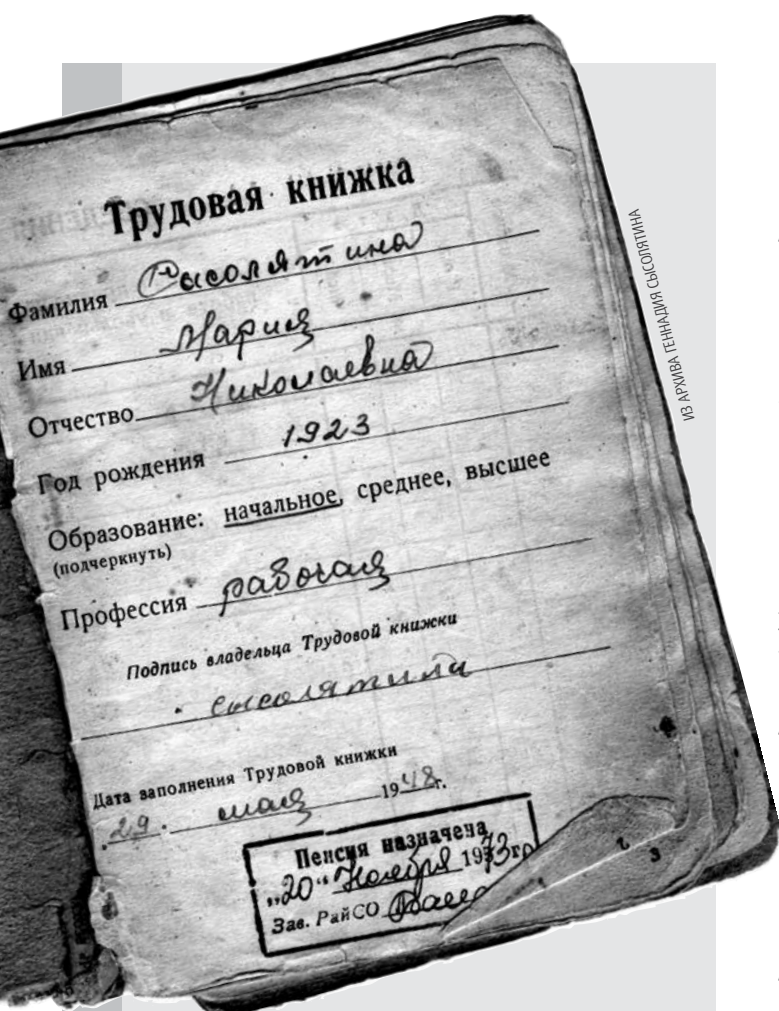 Трудовая книжка
Фамилия Сысолятина
Имя Мария
Отчество Николаевна
Год рождения 1923
Образование: начальное, среднее, высшее
(подчеркнуть)
Профессия рабочая
Подпись владельца Трудовой книжки
сысолятина
Дата заполнения Трудовой книжки
29 мая 1948г.
Пенсия назначена
„20“ Ноября 1973г.
Зав. РайСО
1 2 3
ИЗ АРХИВА ГЕННАДИЯ СЫСОЛЯТИНА